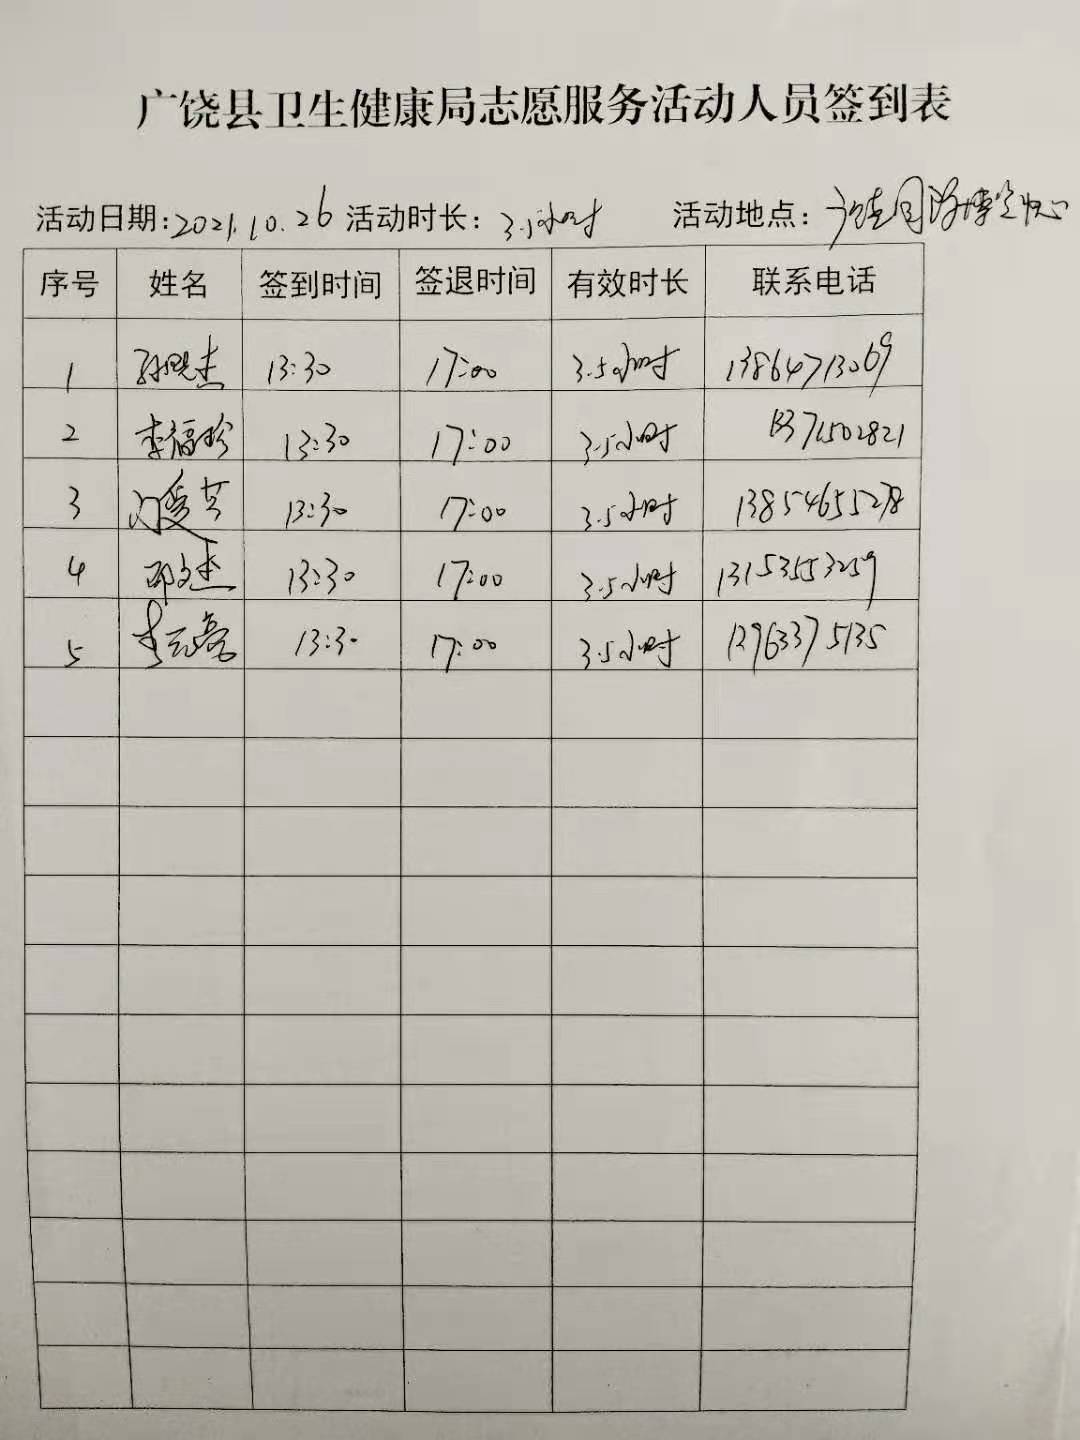 广饶县卫生健康局志愿服务活动人员签到表
活动日期:2021.10.26 活动时长:3.5小时 活动地点:广饶国际博览中心
序号 姓名 签到时间 签退时间 有效时长 联系电话
1 孙晓杰 13:30 17:00 3.5小时 13864713069
2 李福珍 13:30 17:00 3.5小时
3 13:30 17:00 3.5小时 13854655278
4 邵文杰 13:30 17:00 3.5小时 13153553259
5 李元亮 13:30 17:00 3.5小时